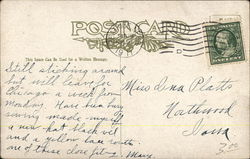 POST CARD
This Space Can Be Used for a Written Message.
Still sticking around
but will leave for
Chicago a week from
Monday. Have been busy
sewing made myself
a new hat black vel
and a yellow
one of these close fit
Mary
Miss Lena Platts
Northwood
Iowa
ONE CENT
D
7.00